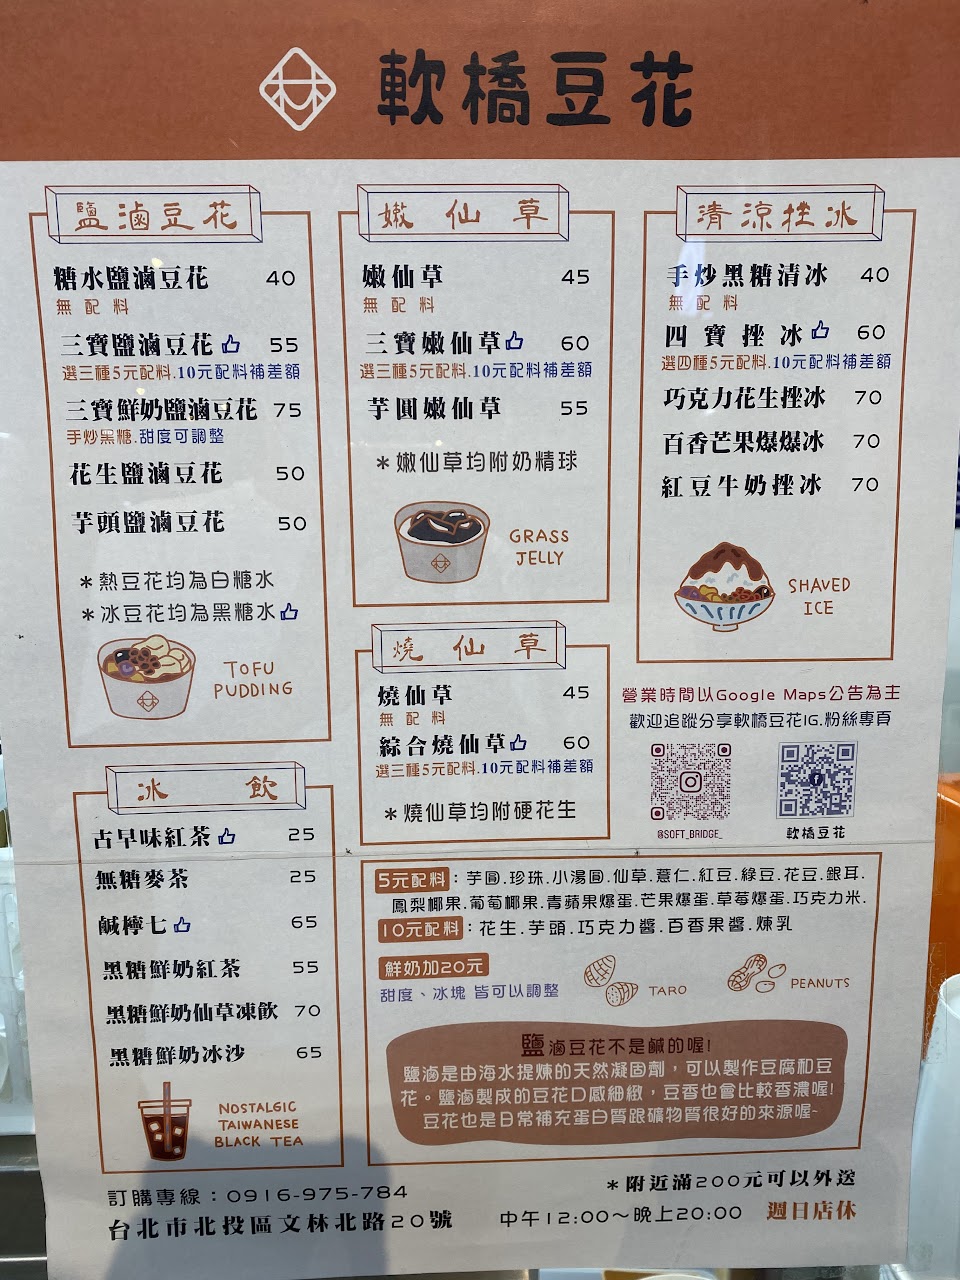 軟橋豆花
鹽滷豆花
糖水鹽滷豆花 40
無配料
三寶鹽滷豆花 55
選三種5元配料.10元配料補差額
三寶鮮奶鹽滷豆花 75
手炒黑糖.甜度可調整
花生鹽滷豆花 50
芋頭鹽滷豆花 50
*熱豆花均為白糖水
*冰豆花均為黑糖水
TOFU
PUDDING
嫩仙草
嫩仙草 45
無配料
三寶嫩仙草 60
選三種5元配料.10元配料補差額
芋圓嫩仙草 55
*嫩仙草均附奶精球
GRASS
JELLY
清涼挫冰
手炒黑糖清冰 40
無配料
四寶挫冰 60
選四種5元配料.10元配料補差額
巧克力花生挫冰 70
百香芒果爆爆冰 70
紅豆牛奶挫冰 70
SHAVED
ICE
燒仙草
燒仙草 45
無配料
綜合燒仙草 60
選三種5元配料.10元配料補差額
*燒仙草均附硬花生
營業時間以Google Maps公告為主
歡迎追蹤分享軟橋豆花IG.粉絲專頁
@SOFT_BRIDGE_
軟橋豆花
冰飲
古早味紅茶 25
無糖麥茶 25
鹹檸七 65
黑糖鮮奶紅茶 55
黑糖鮮奶仙草凍飲 70
黑糖鮮奶冰沙 65
NOSTALGIC
TAIWANESE
BLACK TEA
5元配料：芋圓.珍珠.小湯圓.仙草.薏仁.紅豆.綠豆.花豆.銀耳.
鳳梨椰果.葡萄椰果.青蘋果爆蛋.芒果爆蛋.草莓爆蛋.巧克力米.
10元配料：花生.芋頭.巧克力醬.百香果醬.煉乳
鮮奶加20元
甜度、冰塊 皆可以調整
TARO
PEANUTS
鹽滷豆花不是鹹的喔!
鹽滷是由海水提煉的天然凝固劑，可以製作豆腐和豆
花。鹽滷製成的豆花口感細緻，豆香也會比較香濃喔!
豆花也是日常補充蛋白質跟礦物質很好的來源喔~
訂購專線：0916-975-784
*附近滿200元可以外送
台北市北投區文林北路20號
中午12:00～晚上20:00 週日店休